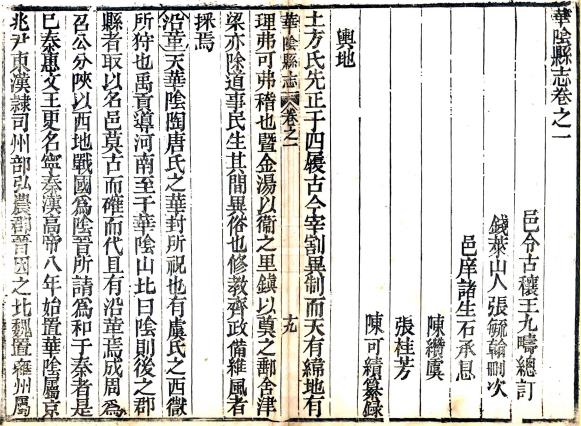 華陰縣志卷之一
邑令古穰王九疇總訂
錢萊山人張毓翰刪次
邑庠諸生石承息
陳纘虞
張桂芳
陳可績纂録
輿地
土方氏先正于四履古今宰割異制而天有緯地有
理弗可弗稽也暨金湯以衛之里鎮以奠之鄽舍津
梁亦除道事民生其間異俗也修教齊政備維風者
採焉
華陰縣志 卷之一 九
沿革 天華陰陶唐氏之華封所祝也有虞氏之西嶽
所狩也禹貢導河南至于華陰山北曰陰則後之郡
縣者取以名邑莫古而確而代且有沿革焉成周爲
召公分陜以西地戰國爲陰晉所請爲和于秦者是
巳秦惠文王更名寧秦漢高帝八年始置華陰屬京
兆尹東漢隷司州部弘農郡晉因之北魏置雍州屬